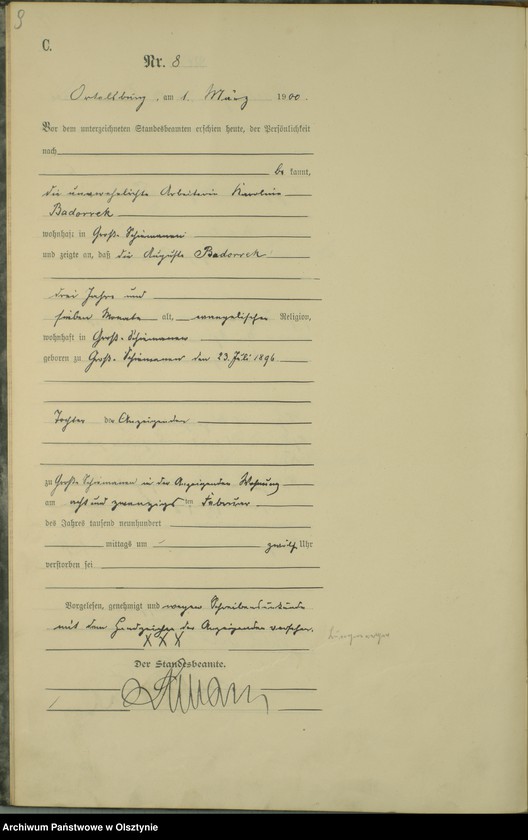 9
C.
Nr. 8
Ortelsburg, am 1. März 1900.
Vor dem unterzeichneten Standesbeamten erschien heute, der Persönlichkeit
nach
be kannt,
die unverehelichte Arbeiterin Karoline
Badorrek
wohnhaft in Groß-Schiemanen
und zeigte an, daß die Auguste Badorrek
drei Jahre und
sieben Monate alt, evangelischer Religion,
wohnhaft in Groß-Schiemanen
geboren zu Groß-Schiemanen den 23. Juli 1896
Tochter der Anzeigenden
zu Groß-Schiemanen in der Anzeigenden Wohnung
am acht und zwanzigsten Februar
des Jahres tausend neunhundert
mittags um zwölf Uhr
verstorben sei
Vorgelesen, genehmigt und wegen Schreibensunkunde
mit dem Handzeichen der Anzeigenden versehen.
X X X
Der Standesbeamte.
Archiwum Państwowe w Olsztynie